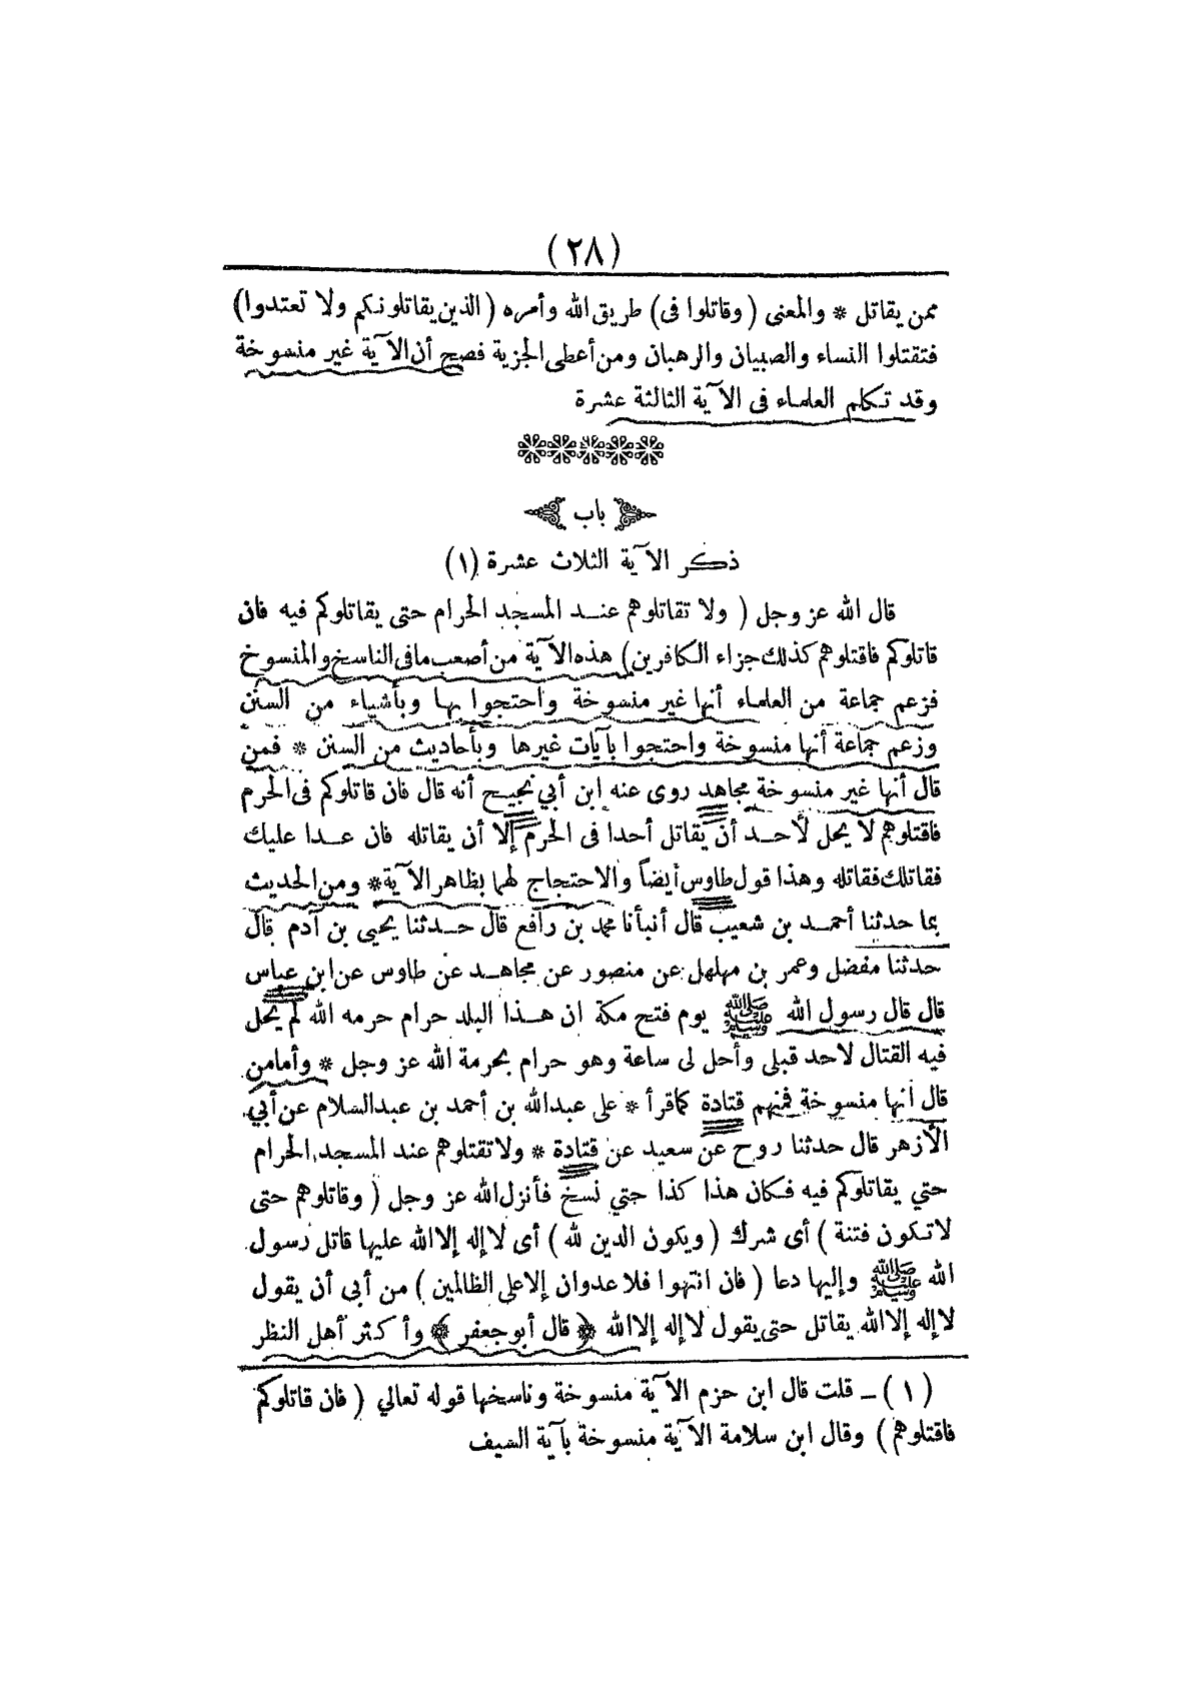 (٢٨)
ممن يقاتل * والمعنى (وقاتلوا فى) طريق الله وأمره (الذين يقاتلونكم ولا تعتدوا)
فتقتلوا النساء والصبيان والرهبان ومن أعطى الجزية فصح أن الآية غير منسوخة
وقد تكلم العلماء فى الآية الثالثة عشرة
باب
ذكر الآية الثلاث عشرة (١)
قال الله عز وجل ( ولا تقاتلوهم عند المسجد الحرام حتى يقاتلوكم فيه فان
قاتلوكم فاقتلوهم كذلك جزاء الكافرين) هذه الآية من أصعب ما فى الناسخ والمنسوخ
فزعم جماعة من العلماء أنها غير منسوخة واحتجوا بها وبأشياء من السنن
وزعم جماعة أنها منسوخة واحتجوا بآيات غيرها وبأحاديث من السنن * فمن
قال أنها غير منسوخة مجاهد روى عنه ابن أبي نجيح أنه قال فان قاتلوكم فى الحرم
فاقتلوهم لا يحل لأحد أن يقاتل أحدا فى الحرم إلا أن يقاتله فان عدا عليك
فقاتلك فقاتله وهذا قول طاوس أيضاً والاحتجاج لهما بظاهر الآية * ومن الحديث
بما حدثنا أحمد بن شعيب قال أنبأنا محمد بن رافع قال حدثنا يحيى بن آدم قال
حدثنا مفضل وعمر بن مهلهل عن منصور عن مجاهد عن طاوس عن ابن عباس
قال قال رسول الله ﷺ يوم فتح مكة ان هذا البلد حرام حرمه الله لم يحل
فيه القتال لاحد قبلى وأحل لى ساعة وهو حرام بحرمة الله عز وجل * وأما من
قال أنها منسوخة فمنهم قتادة كما قرأ * على عبدالله بن أحمد بن عبدالسلام عن أبي
الأزهر قال حدثنا روح عن سعيد عن قتادة * ولا تقتلوهم عند المسجد الحرام
حتي يقاتلوكم فيه فكان هذا كذا حتي نسخ فأنزل الله عز وجل ( وقاتلوهم حتى
لا تكون فتنة ) أى شرك ( ويكون الدين لله ) أى لا إله إلا الله عليها قاتل رسول
الله ﷺ وإليها دعا ( فان انتهوا فلا عدوان إلا على الظالمين ) من أبى أن يقول
لا إله إلا الله يقاتل حتى يقول لا إله إلا الله ﴿ قال أبو جعفر ﴾ وأكثر أهل النظر
(١) ـ قلت قال ابن حزم الآية منسوخة وناسخها قوله تعالي ( فان قاتلوكم
فاقتلوهم ) وقال ابن سلامة الآية منسوخة بآية السيف